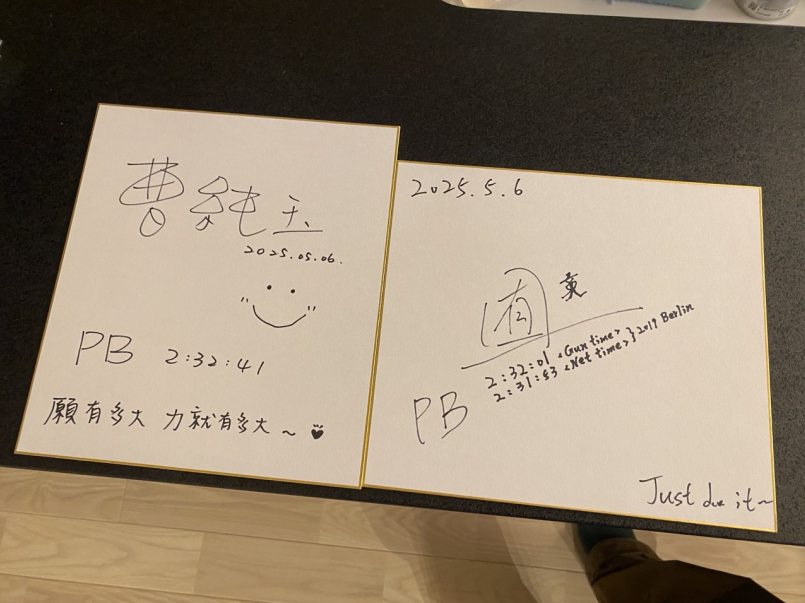 曹純玉
2025.05.06.
PB 2:32:41
願有多大 力就有多大~
2025.5.6
PB
2:32:01 <Gun time>
2:31:53 <Net time> } 2019 Berlin
Just due it~